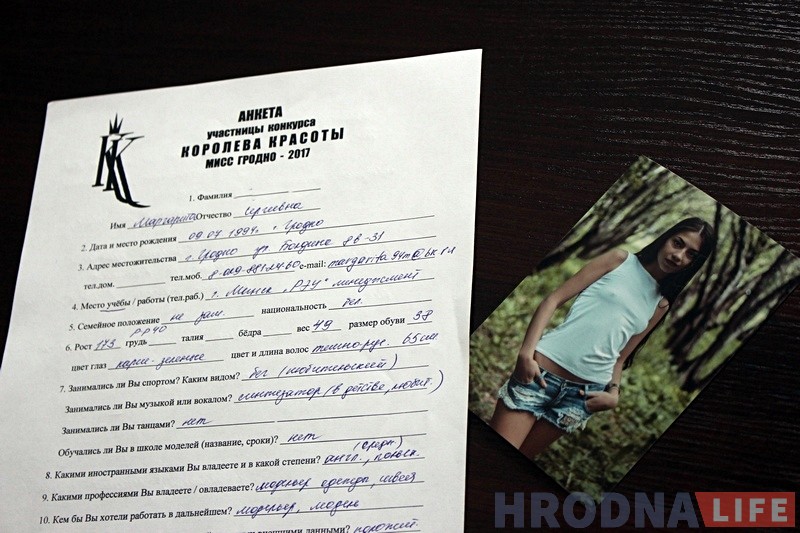 АНКЕТА
участницы конкурса
КОРОЛЕВА КРАСОТЫ
МИСС ГРОДНО - 2017
1. Фамилия
Имя Маргарита Отчество Сергеевна
2. Дата и место рождения 09.07.1994 г. Гродно
3. Адрес местожительства г. Гродно ул. Болдина
тел.дом. тел.моб. e-mail:
4. Место учёбы / работы (тел.раб.) г. Минск, менеджмент
5. Семейное положение не зам. национальность бел.
6. Рост 173 грудь талия бёдра вес 49 размер обуви 38
цвет глаз карие-зеленые цвет и длина волос темно-рус. 65 см.
7. Занимались ли Вы спортом? Каким видом? бег (любительский)
Занимались ли Вы музыкой или вокалом? синтезатор (в детстве, любит.)
Занимались ли Вы танцами? нет
Обучались ли Вы в школе моделей (название, сроки)? нет
8. Какими иностранными языками Вы владеете и в какой степени? англ., польск. (средн.)
9. Какими профессиями Вы владеете / овладеваете? модельер одежды, швея
10. Кем бы Вы хотели работать в дальнейшем? модельер, модель
внешними данными?
HRODNA LIFE